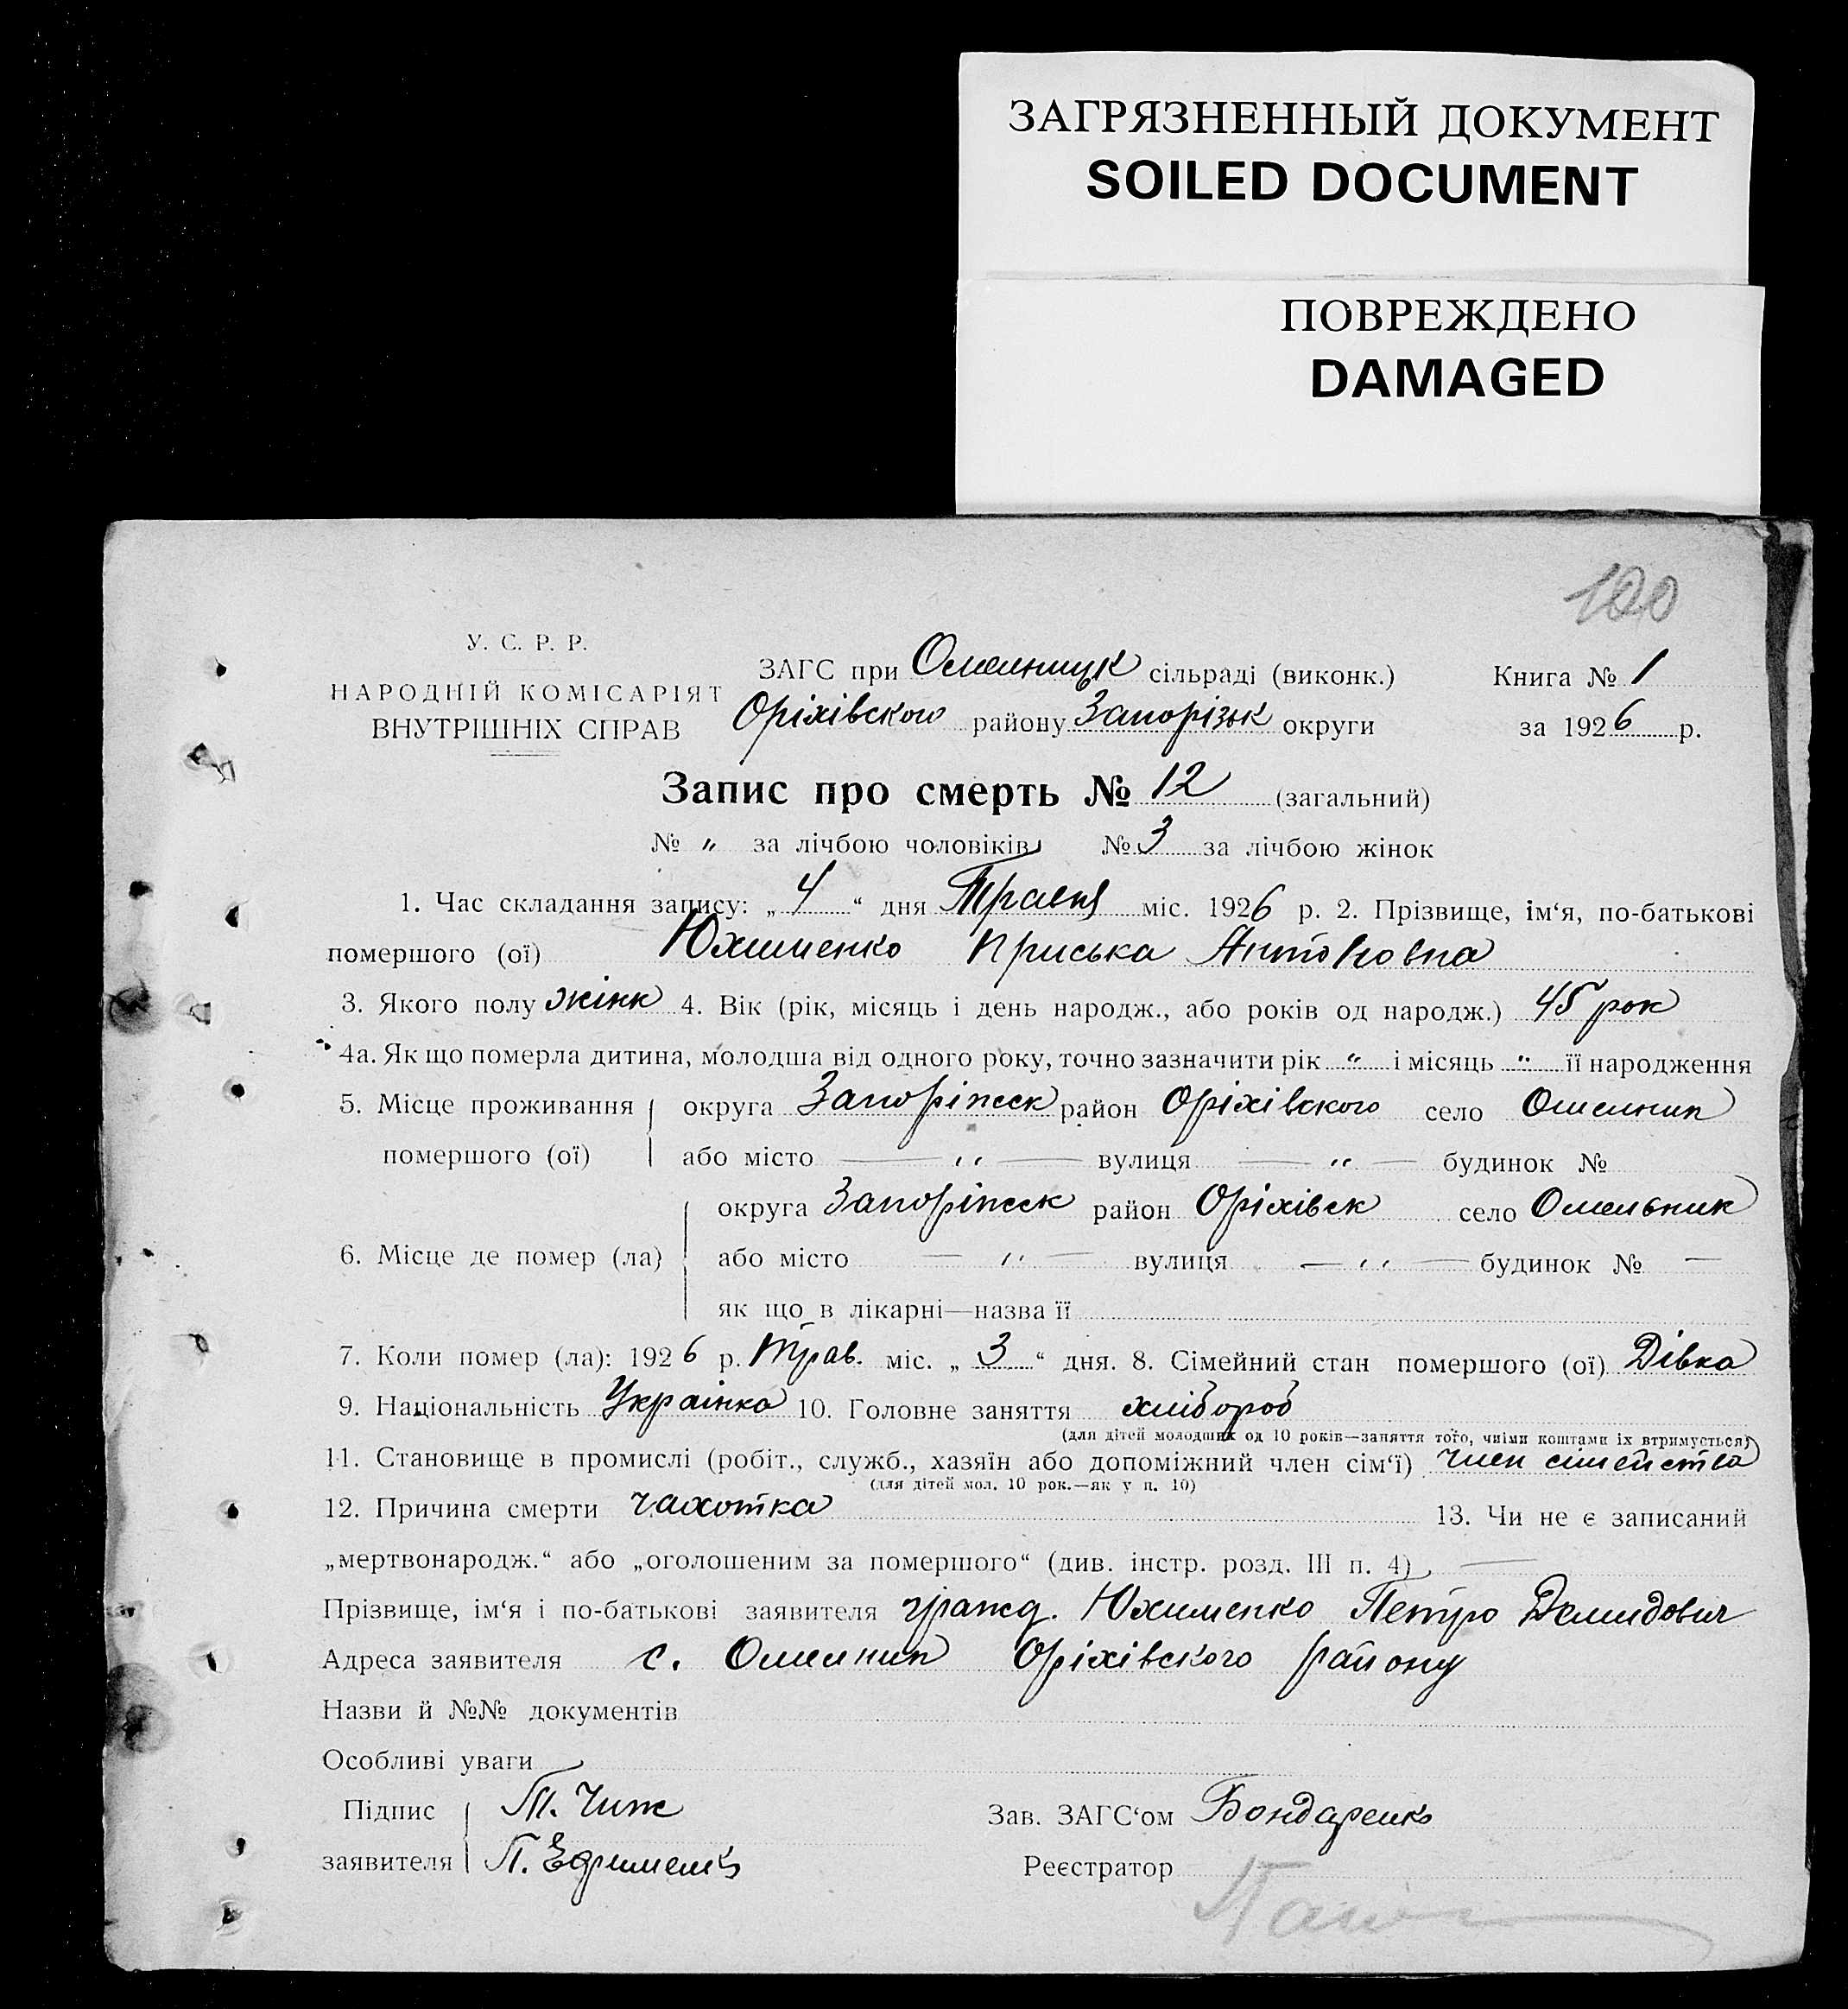 ЗАГРЯЗНЕННЫЙ ДОКУМЕНТ
SOILED DOCUMENT
ПОВРЕЖДЕНО
DAMAGED
100
У. С. Р. Р.
НАРОДНІЙ КОМІСАРІЯТ
ВНУТРІШНІХ СПРАВ
ЗАГС при Омелницк сільраді (виконк.)
Оріхівского району Запорізьк округи
Книга № 1
за 1926 р.
Запис про смерть № 12 (загальний)
№ " за лічбою чоловіків № 3 за лічбою жінок
1. Час складання запису: „4“ дня Травня міс. 1926 р. 2. Прізвище, ім‘я, по-батькові
помершого (ої) Юхименко Приська Антоновна
3. Якого полу жінк 4. Вік (рік, місяць і день народж., або років од народж.) 45 рок
4а. Як що померла дитина, молодша від одного року, точно зазначити рік " і місяць " її народження
5. Місце проживання округа Запоріжск район Оріхівского село Омелник
помершого (ої) або місто — " — вулиця — " — будинок №
округа Запоріжск район Оріхівск село Омельник
6. Місце де помер (ла) або місто — " — вулиця — " — будинок № —
як що в лікарні—назва її
7. Коли помер (ла): 1926 р. Трав. міс. „3“ дня. 8. Сімейний стан помершого (ої) Дівка
9. Національність Украінка 10. Головне заняття хлібороб
(для дітей молодших од 10 років—заняття того, чиїми коштами їх втримується)
11. Становище в промислі (робіт., служб., хазяїн або допоміжний член сім‘ї) член сімейства
(для дітей мол. 10 рок.—як у п. 10)
12. Причина смерти чахотка 13. Чи не є записаний
„мертвонародж.“ або „оголошеним за помершого“ (див. інстр. розд. III п. 4) —
Прізвище, ім‘я і по-батькові заявителя гражд. Юхименко Петро Демидович
Адреса заявителя с. Омелник Оріхівского району
Назви й №№ документів
Особливі уваги
Підпис Т. Чиж
заявителя П. Ефименко
Зав. ЗАГС‘ом Бондаренко
Реєстратор